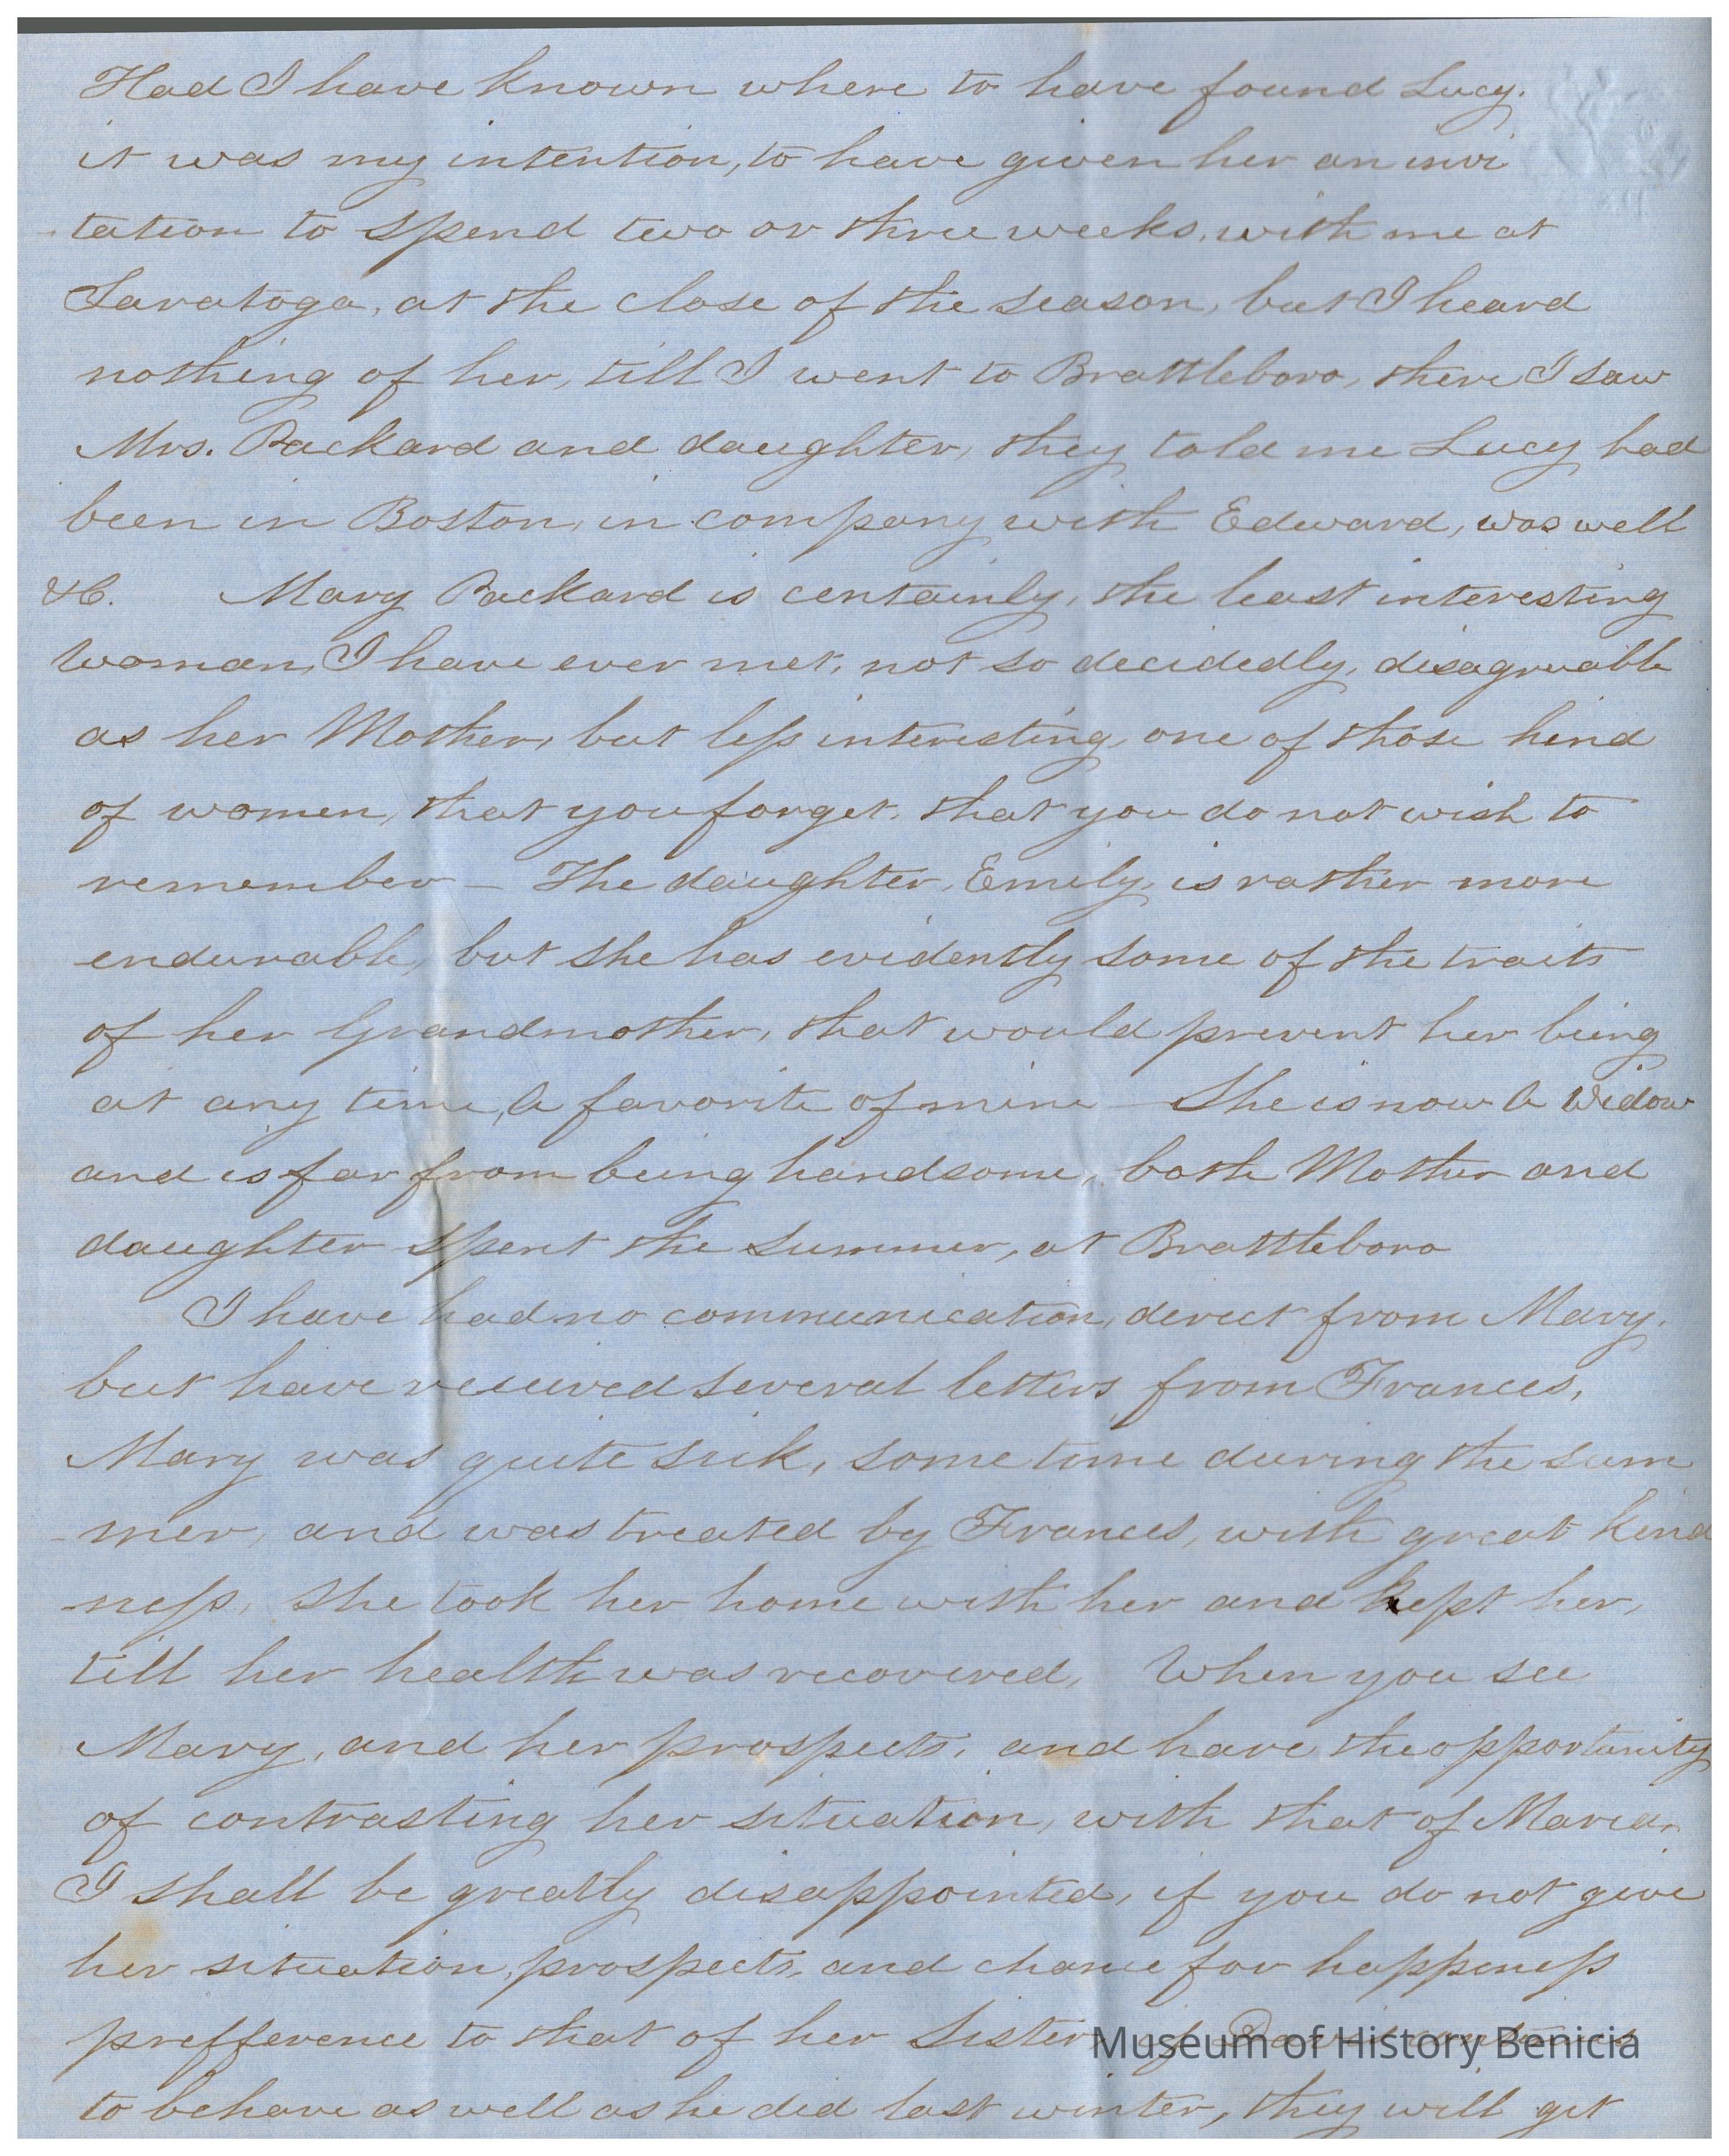 Had I have known where to have found Lucy.
it was my intention, to have given her an invi
-tation to spend two or three weeks, with me at
Saratoga, at the close of the season, but I heard
nothing of her, till I went to Brattleboro, there I saw
Mrs. Packard and daughter, they told me Lucy had
been in Boston, in company with Edward, was well
&C. Mary Packard is certainly, the least interesting
woman, I have ever met, not so decidedly, disagreeable
as her Mother, but less interesting, one of those kind
of women, that you forget, that you do not wish to
remember — The daughter, Emily, is rather more
endurable, but she has evidently some of the traits
of her Grandmother, that would prevent her being
at any time, a favorite of mine — She is now a Widow
and is far from being handsome, both Mother and
daughter spent the summer, at Brattleboro
I have had no communication, direct from Mary.
but have received several letters, from Frances,
Mary was quite sick, some time during the sum
-mer, and was treated by Frances, with great kind
-ness, she took her home with her and kept her,
till her health was recovered, When you see
Mary, and her prospects, and have the opportunity
of contrasting her situation, with that of Maria,
I shall be greatly disappointed, if you do not give
her situation, prospects, and chance for happiness
prefference to that of her Sister if
Museum of History Benicia
to behave as well as he did last winter, they will get